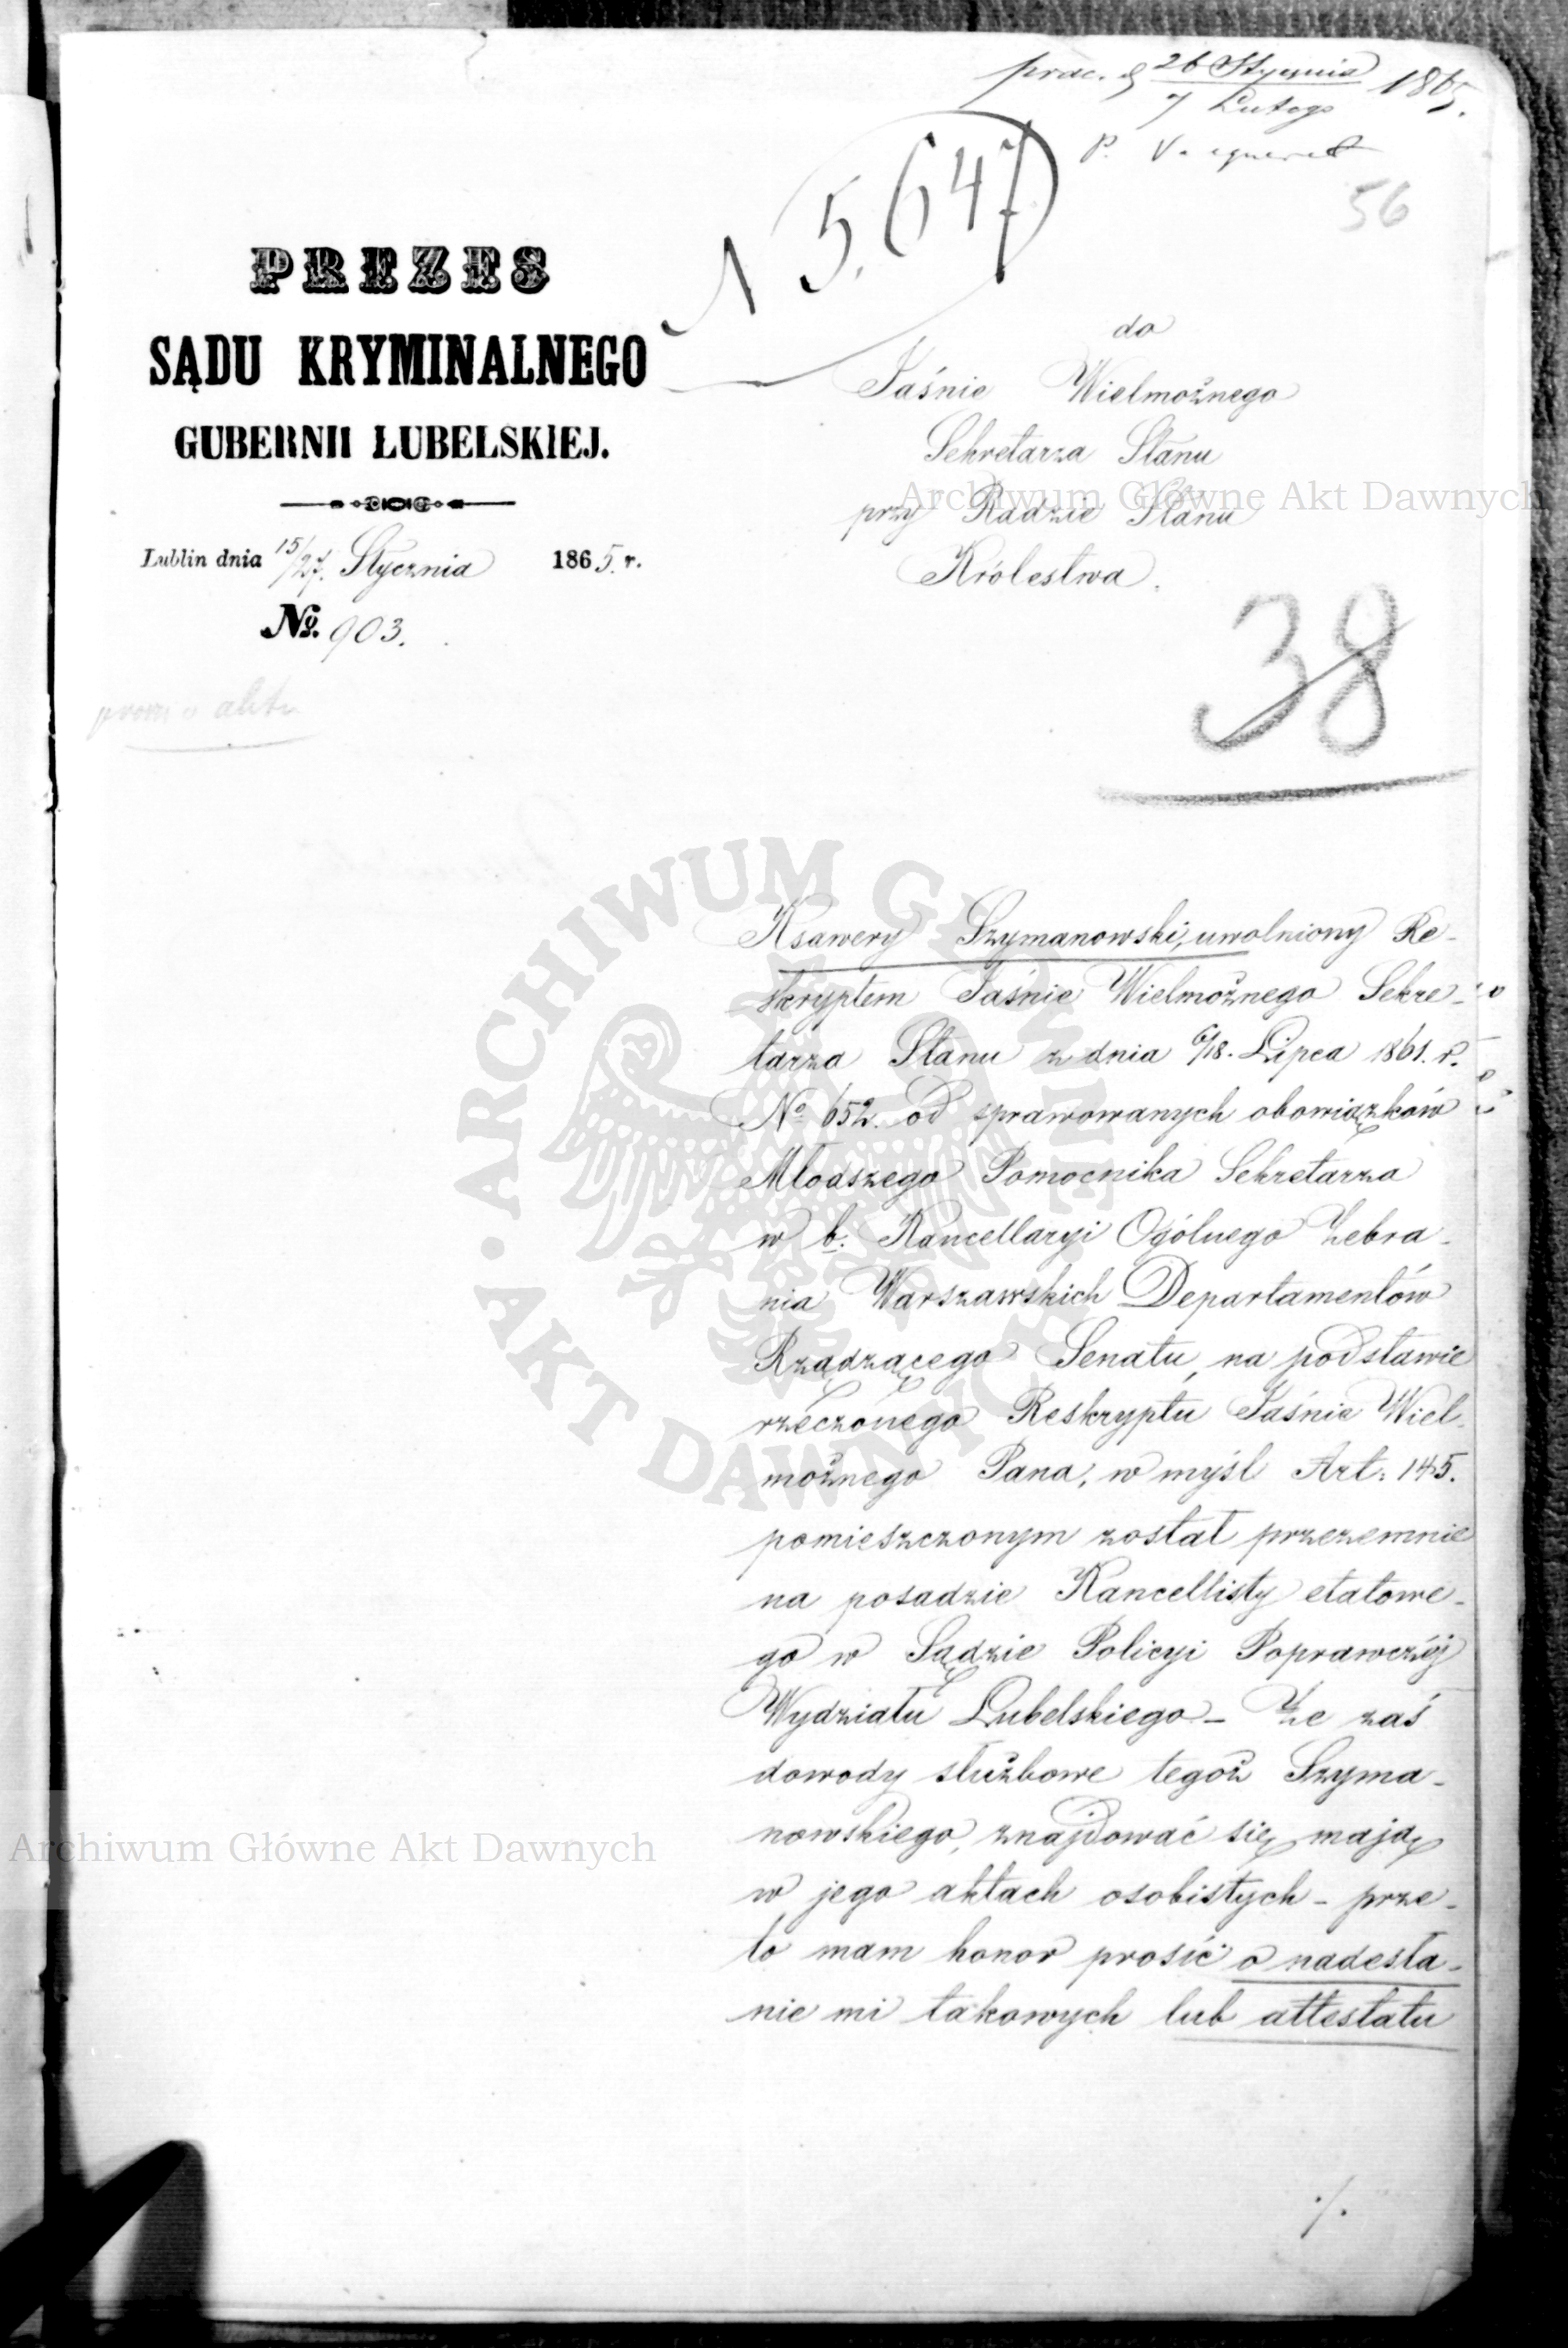 26 Stycznia 1865.
7 Lutego
P.
56
N 5.647
PREZES
SĄDU KRYMINALNEGO
GUBERNII LUBELSKIEJ.
Lublin dnia 15/27. Stycznia 1865. r.
No. 903.
do
Jaśnie Wielmożnego
Sekretarza Stanu
przy Radzie Stanu
Królestwa.
38
Ksawery Szymanowski, uwolniony Re-
skryptem Jaśnie Wielmożnego Sekre-
tarza Stanu z dnia 6/18. Lipca 1861. r.
No 652. od sprawowanych obowiązków
Młodszego Pomocnika Sekretarza
w b. Kancellaryi Ogólnego Zebra-
nia Warszawskich Departamentów
Rządzącego Senatu, na podstawie
rzeczonego Reskryptu Jaśnie Wiel-
możnego Pana, w myśl Art: 145.
pomieszczonym został przezemnie
na posadzie Kancellisty etatowe-
go w Sądzie Policyi Poprawczéj
Wydziału Lubelskiego – Że zaś
dowody służbowe tegoż Szyma-
nowskiego, znajdować się mają
w jego aktach osobistych – prze-
to mam honor prosić o nadesła-
nie mi takowych lub attestatu
./.
Archiwum Główne Akt Dawnych
ARCHIWUM GŁÓWNE
AKT DAWNYCH
Archiwum Główne Akt Dawnych